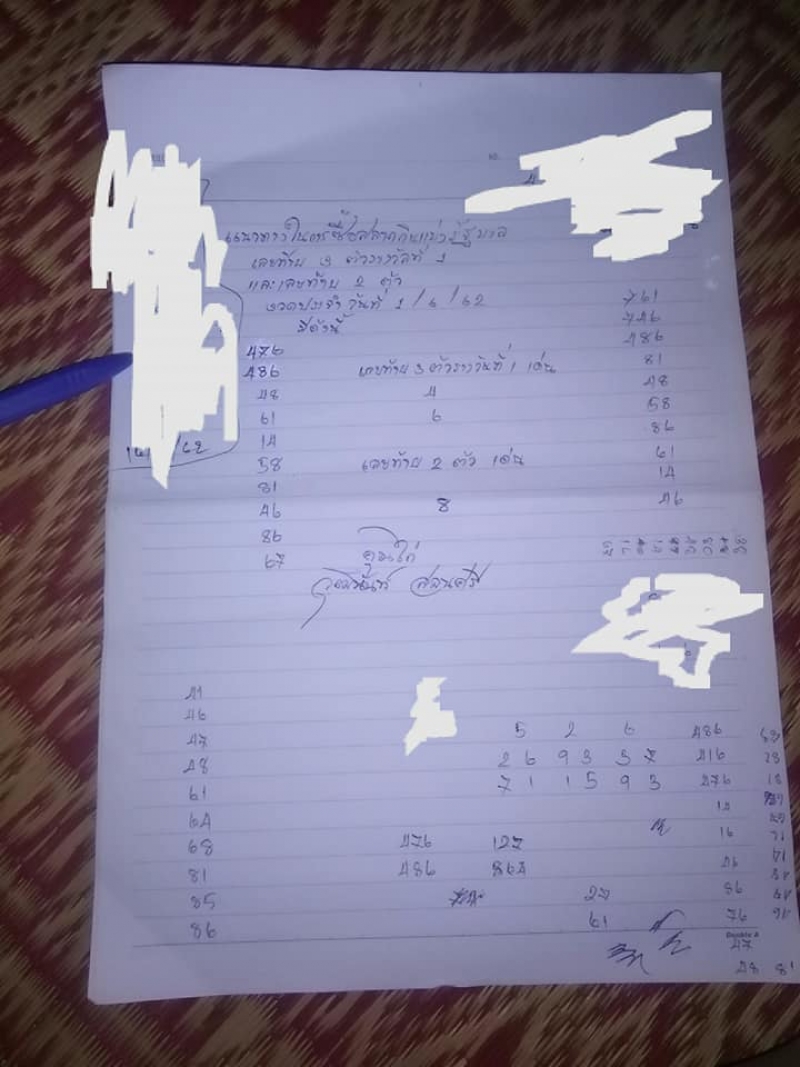 แนวทางในการซื้อสลากกินแบ่งรัฐบาล
เลขท้าย 3 ตัวรางวัลที่ 1
และเลขท้าย 2 ตัว
งวดประจำวันที่ 1/6/62
มีดังนี้
476
486
48
61
14
58
81
46
86
67
เลขท้าย 3 ตัวรางวันที่ 1 เด่น
4
6
เลขท้าย 2 ตัว เด่น
8
761
746
486
81
48
58
86
61
14
46
41
46
47
48
61
64
68
81
85
86
5 2 6
2 6 9 3 3 7
7 1 1 5 9 3
476 127
486 864
27
61
486
416
476
14
16
46
86
76
Double A
47
48 81